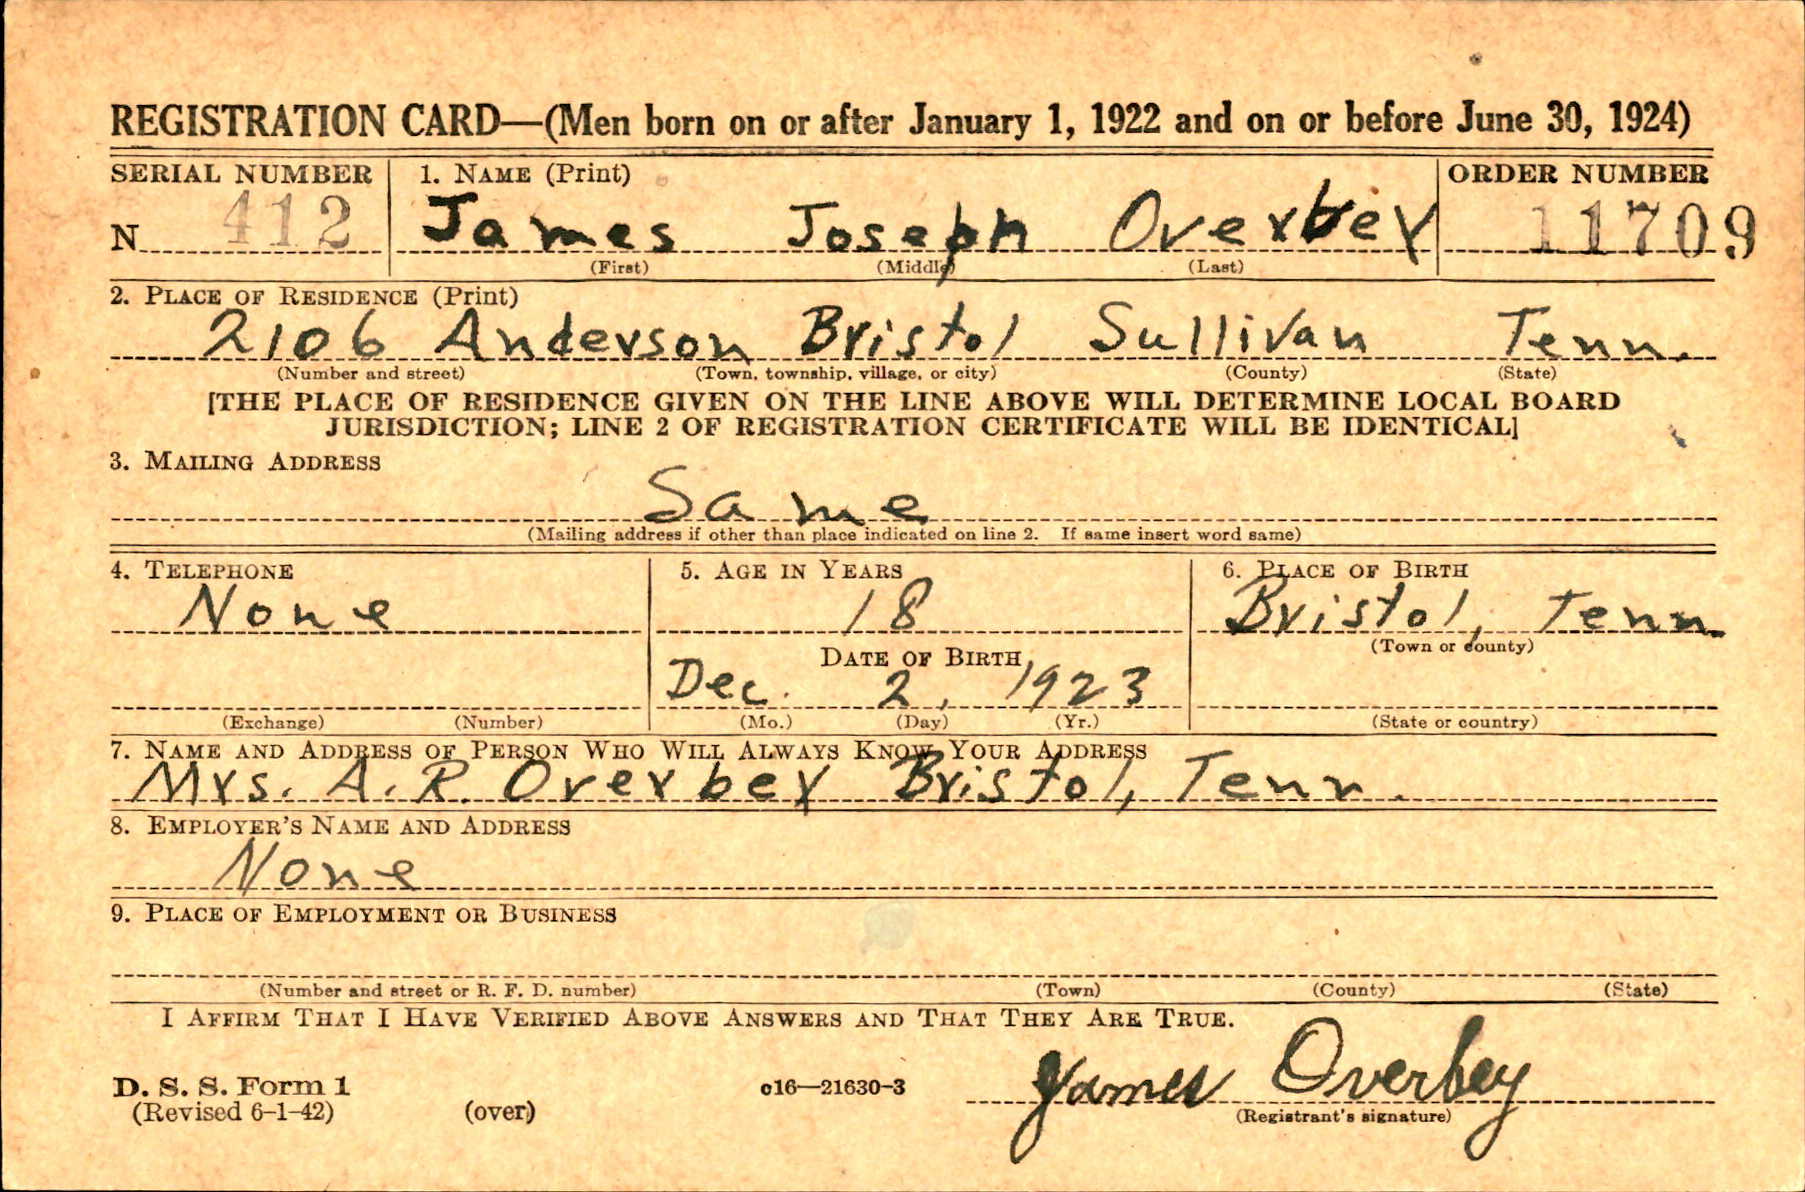 REGISTRATION CARD—(Men born on or after January 1, 1922 and on or before June 30, 1924)
SERIAL NUMBER 1. NAME (Print) ORDER NUMBER
N 412 James Joseph Overbey 11709
(First) (Middle) (Last)
2. PLACE OF RESIDENCE (Print)
2106 Anderson Bristol Sullivan Tenn.
(Number and street) (Town, township, village, or city) (County) (State)
[THE PLACE OF RESIDENCE GIVEN ON THE LINE ABOVE WILL DETERMINE LOCAL BOARD
JURISDICTION; LINE 2 OF REGISTRATION CERTIFICATE WILL BE IDENTICAL]
3. MAILING ADDRESS
Same
(Mailing address if other than place indicated on line 2. If same insert word same)
4. TELEPHONE 5. AGE IN YEARS 6. PLACE OF BIRTH
None 18 Bristol, Tenn.
(Town or county)
DATE OF BIRTH
Dec. 2, 1923
(Exchange) (Number) (Mo.) (Day) (Yr.) (State or country)
7. NAME AND ADDRESS OF PERSON WHO WILL ALWAYS KNOW YOUR ADDRESS
Mrs. A. R. Overbey Bristol, Tenn.
8. EMPLOYER'S NAME AND ADDRESS
None
9. PLACE OF EMPLOYMENT OR BUSINESS
(Number and street or R. F. D. number) (Town) (County) (State)
I AFFIRM THAT I HAVE VERIFIED ABOVE ANSWERS AND THAT THEY ARE TRUE.
James Overbey
D. S. S. Form 1 c16—21630-3
(Revised 6-1-42) (over) (Registrant's signature)